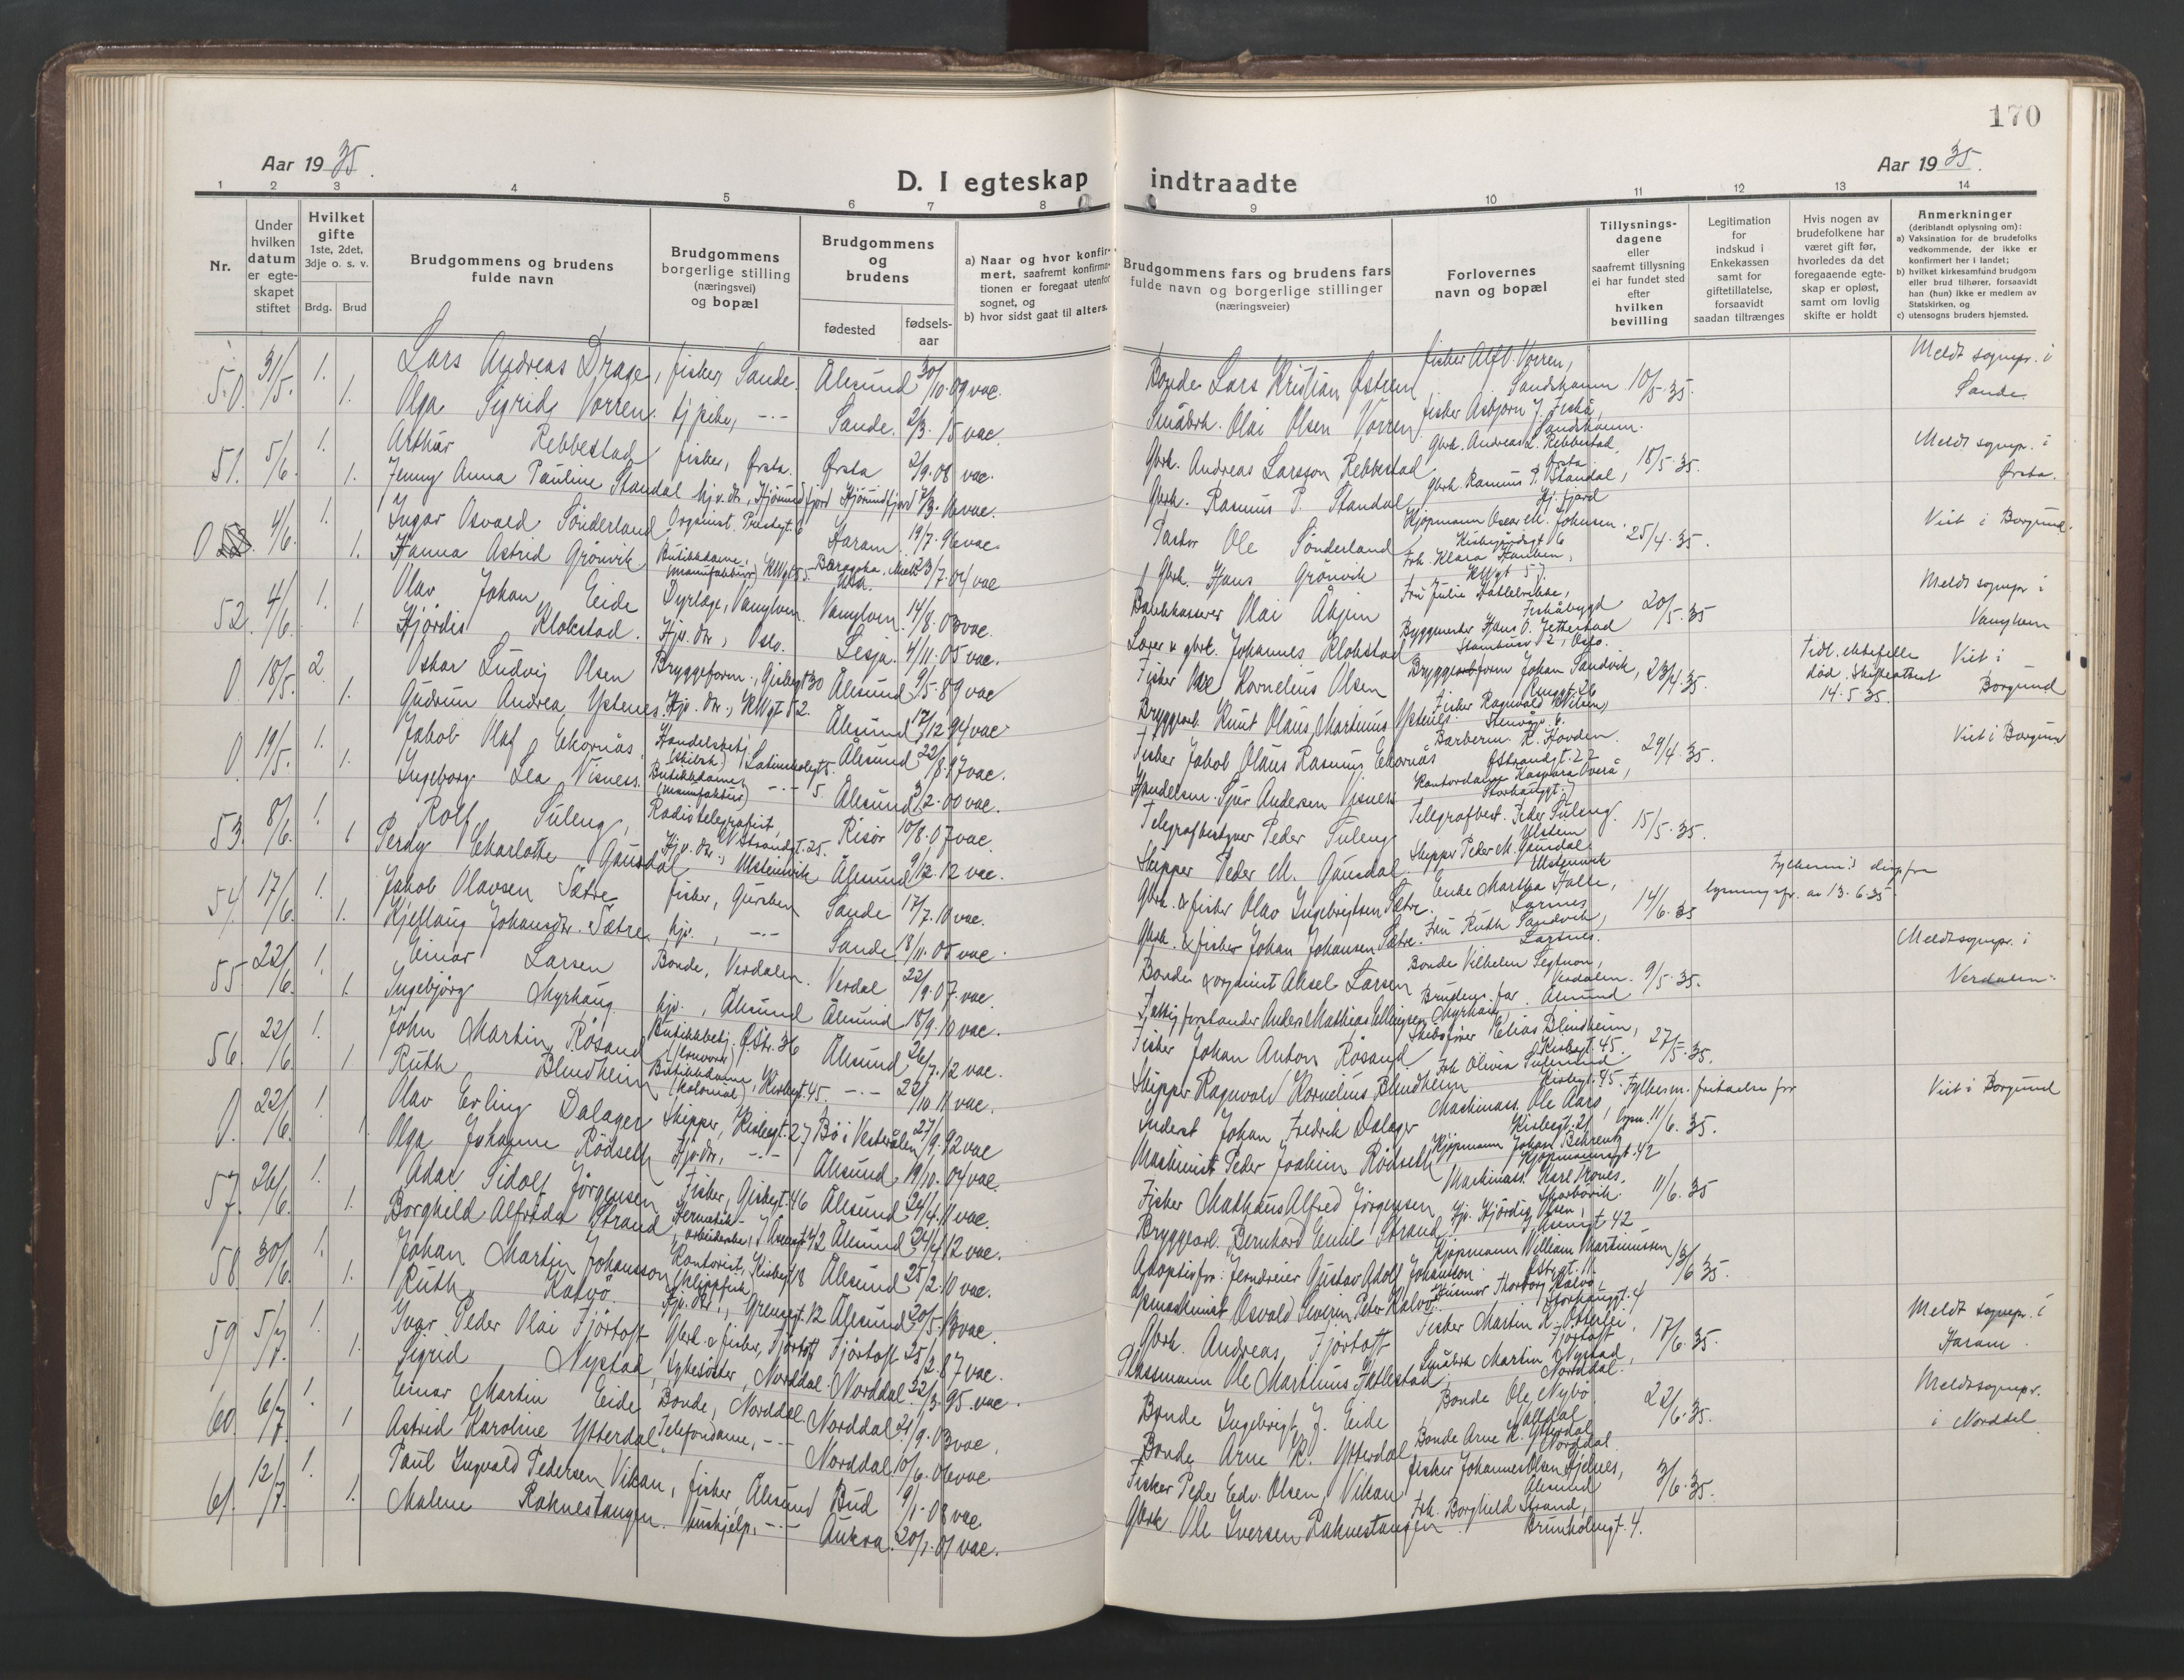 170
Aar 1935.
Aar 1935.
D. I egteskap indtraadte
1 2 3 4 5 6 7 8 9 10 11 12 13 14
Nr.
Under hvilken datum er egteskapet stiftet
Hvilket gifte 1ste, 2det, 3dje o. s. v.
Brdg. Brud
Brudgommens og brudens fulde navn
Brudgommens borgerlige stilling (næringsvei) og bopæl
Brudgommens og brudens
fødested
fødselsaar
a) Naar og hvor konfirmert, saafremt konfirmationen er foregaat utenfor sognet, og
b) hvor sidst gaat til alters.
Brudgommens fars og brudens fars fulde navn og borgerlige stillinger (næringsveier)
Forlovernes navn og bopæl
Tillysningsdagene eller saafremt tillysning ei har fundet sted efter hvilken bevilling
Legitimation for indskud i Enkekassen samt for giftetillatelse, forsaavidt saadan tiltrænges
Hvis nogen av brudefolkene har været gift før, hvorledes da det foregaaende egteskap er opløst, samt om lovlig skifte er holdt
Anmerkninger (deriblandt oplysning om):
a) Vaksination for de brudefolks vedkommende, der ikke er konfirmert her i landet;
b) hvilket kirkesamfund brudgom eller brud tilhører, forsaavidt han (hun) ikke er medlem av Statskirken, og
c) utensogns bruders hjemsted.
50. 31/5. 1. Lars Andreas Drage, fisker, Sande. Ålesund 30/10.09 vac. Bonde Lars Kristian Østrem fisker Alf O. Vorren, Sandshamn 10/5.35. Meldt sognepr. i Sande.
1. Olga Sigrid Vorren. hj. pike, -.- Sande. 2/3.15 vac. Småbrk. Olai Olsen Vorren fisker Asbjørn J. Fiskå, Sandshamn.
51. 5/6. 1. Arthur Rebbestad fisker, Ørsta. Ørsta 2/9.08 vac. Gbrk. Andreas Larsson Rebbestad Gbrk. Andreas L. Rebbestad, Ørsta 18/5.35. Meldt sognep. i Ørsta.
1. Jenny Anna Pauline Standal hj.v. dr., Hjørundfjord Hjørundfjord 7/3.16 vac. Gbrk. Rasmus P. Standal Gbrk. Rasmus P. Standal, Hj.fjord
0 4/6. 1. Ingar Osvald Sønderland Organist. Prestegt. 6 Haram 19/7.96 vac. Pastor Ole Sønderland Kjøpmann Oscar M. Johnsen. Kirkegårdsgt 6 25/4.35. Viet i Borgund.
1. Hanna Astrid Grønvik Butikkdame (manufaktur) KWgt 55. 23/7.04 vac Gbrk. Hans Grønvik Frk. Klara Hansen, KWgt 57.
52. 4/6. 1. Olav Johan Eide Dyrlæge, Vanylven. Vanylven. 14/8.03 vac. Bankkasserer Olai Åhjem Fru Julie Fiskåbygd 20/5.35 Meldt sognepr i Vanylven
1 Hjørdis Klokstad. Hjv. dtr., Oslo. Lesja. 4/11.05 vac. Lærer & gbrk. Johannes Klokstad Byggmester Hans O. Jetterstad Oslo.
0. 18/5. 2. Oskar Ludvig Olsen Bryggeform., Giskegt 30 Ålesund 9/5.89 vac Fisker Ole Kornelius Olsen Bryggeform Johan Sandvik, 23/4.35. Tidl. ektefelle død. Skifteattest 14.5.35. Viet i Borgund
1. Gudrun Andrea Ystenes. Hjv. dr., KWgt 52. Ålesund 17/12.94 vac Bryggearb. Knut Olaus Martinus Ystenes. Fisker Ragnvald Nilsen,
0. 19/5. 1. Jakob Olaf Ekornås. Handelsbetj. Latinskolegt 5. Ålesund 22/8.97 vac. Fisker Jakob Olaus Rasmus Ekornås Barberm. K. Hovden. Ø Strandgt. 22 29/4.35. Viet i Borgund
1. Ingeborg Lea Visnes. Butikkdame (manufaktur) -.- 5. Ålesund 3/2.00 vac. Handelsm. Sjur Andersen Visnes Kontordame Kaspara Overå, Storhauggt. 7
53. 8/6. 1. Rolf Tuleng, Radiotelegrafist, V Strandgt. 25. Risør 10/8.07 vac. Telegrafbestyrer Peder Tuleng Telegrafbest. Peder Tuleng. 15/5.35.
1 Perdy Charlotte Gausdal Hjv. dtr., Ulsteinvik Ålesund 9/12.12 vac. Skipper Peder M. Gausdal. Skipper Peder M. Gausdal Ulsteinvik
54. 17/6. 1. Jakob Olavsen Sætre fisker, Gursken Sande 17/7.10 vac. Gbrk. & fisker Olav Ingebrigtsen Sætre. Enke Martha Halle, Larsnes 14/6.35 Fylkesm:s disp. fra lysningsfr. av 13.6.35.
1. Kjellaug Johansdtr. Sætre hjv., -.- Sande 18/11.05 vac. Gbrk. & fisker Johan Johansen Sætre. Fru Ruth Sandvik, Larsnes.
55 22/6. 1. Einar Larsen Bonde, Verdalen. Verdal 22/9.07. vac. Bonde & organist Aksel Larsen Bonde Vilhelm Segtnan, Verdalen. 9/5.35. Meldt sognepr. i Verdalen.
1. Ingebjørg Myrhaug. hjv., Ålesund Ålesund 18/9.10 vac. Fattigforstander Anders Mathias Ellingsen Myrhaug. Brudens far. Ålesund
56. 22/6 1. John Martin Røsand Butikkbetj. Ø Str. 36 Ålesund 26/7.12 vac. Fisker Johan Anton Røsand. Skibsfører Elias Blindheim, Kirkegt. 45. 27/5.35.
1. Ruth Blindheim Butikkdame, (kolonial) Kirkegt. 45. -.- 22/10.11 vac. Skipper Ragnvald Kornelius Blindheim Frk Olivia Kirkegt. 45.
0. 22/6. 1. Olav Erling Dalager Skipper, Kirkegt. 27 Bø i Vesterålen 27/9.92 vac Inderst Johan Fredrik Dalager Maskinass. Ole Aars, Kirkegt. 21 lysn. 11/6.35. Fylkesm. fritaelse for Viet i Borgund
1. Olga Johanne Rødseth Hjv.dtr., -.- Ålesund 19/10.04 vac. Maskinist Peder Joakim Rødseth Kjøpmann Johan Behrentz Kjøpmannsgt. 42
57. 26/6 1. Adar Sidolf Jørgensen Fisker, Giskegt. 46 Ålesund 24/4.11 vac. Fisker Mathæus Alfred Jørgensen Maskinass. Karl Trones, Skarbøvik. 11/6.35
1. Borghild Alfrida Strand Hermetikkarbeiderske, J Aasengt 42 Ålesund 24/4.12 vac. Bryggearb. Bernhard Emil Strand Hjv. Hjørdis Olsen, J Aasengt 42
58. 30/6. 1. Johan Martin Johansson Kontorist, Kirkegt 18 Ålesund 25/2.10 vac. Adoptivfar: Jerndreier Gustav Adolf Johanson Kjøpmann William Martinussen Ø Str.gt. 11. 13/6.35.
1. Ruth Kalvø. Hjv. dtr., Grensegt. 12 Ålesund 20/5.13 vac. Gbrk. Osvald Severin Peter Kalvø. Husmor Thorborg Kalvø, Storhauggt. 4
59 5/7. 1. Ivar Peder Olai Fjørtoft Gbrk. & fisker, Fjørtoft Fjørtoft 25/2.87 vac. Gbrk. Andreas Fjørtoft Fisker Martin K. Otterlei, Fjørtoft 17/6.35. Meldt sognepr. i Haram.
1. Sigrid Nystad, Sykesøster, Norddal. Norddal. 22/3.95. vac. Plassmann Ole Martinus Fætlestad. Småbrk Martin Nystad, Norddal.
60 6/7 1. Einar Martin Eide Bonde, Norddal. Norddal 21/9.03 vac. Bonde Ingebrigt J. Eide Bonde Ole Nybø Valldal 22/6.35. Meldt sognepr. i Norddal
1 Astrid Karoline Ytterdal. Telefondame, -.- Norddal 10/6.06 vac Bonde Arne K. Ytterdal Bonde Arne K. Ytterdal Norddal
61. 12/7. 1. Paul Ingvald Pedersen Vikan, fisker, Ålesund Bud 9/1.08 vac Fisker Peder Edv. Olsen Vikan fisker Johannes Olsen Hjelnes, Ålesund 3/6.35.
1. Malene Raknestangen. hushjelp, -.- Aukra. 20/1.01 vac. Gbrk. Ole Iversen Raknestangen Frk. Borghild Strand, Brunholmgt. 4.